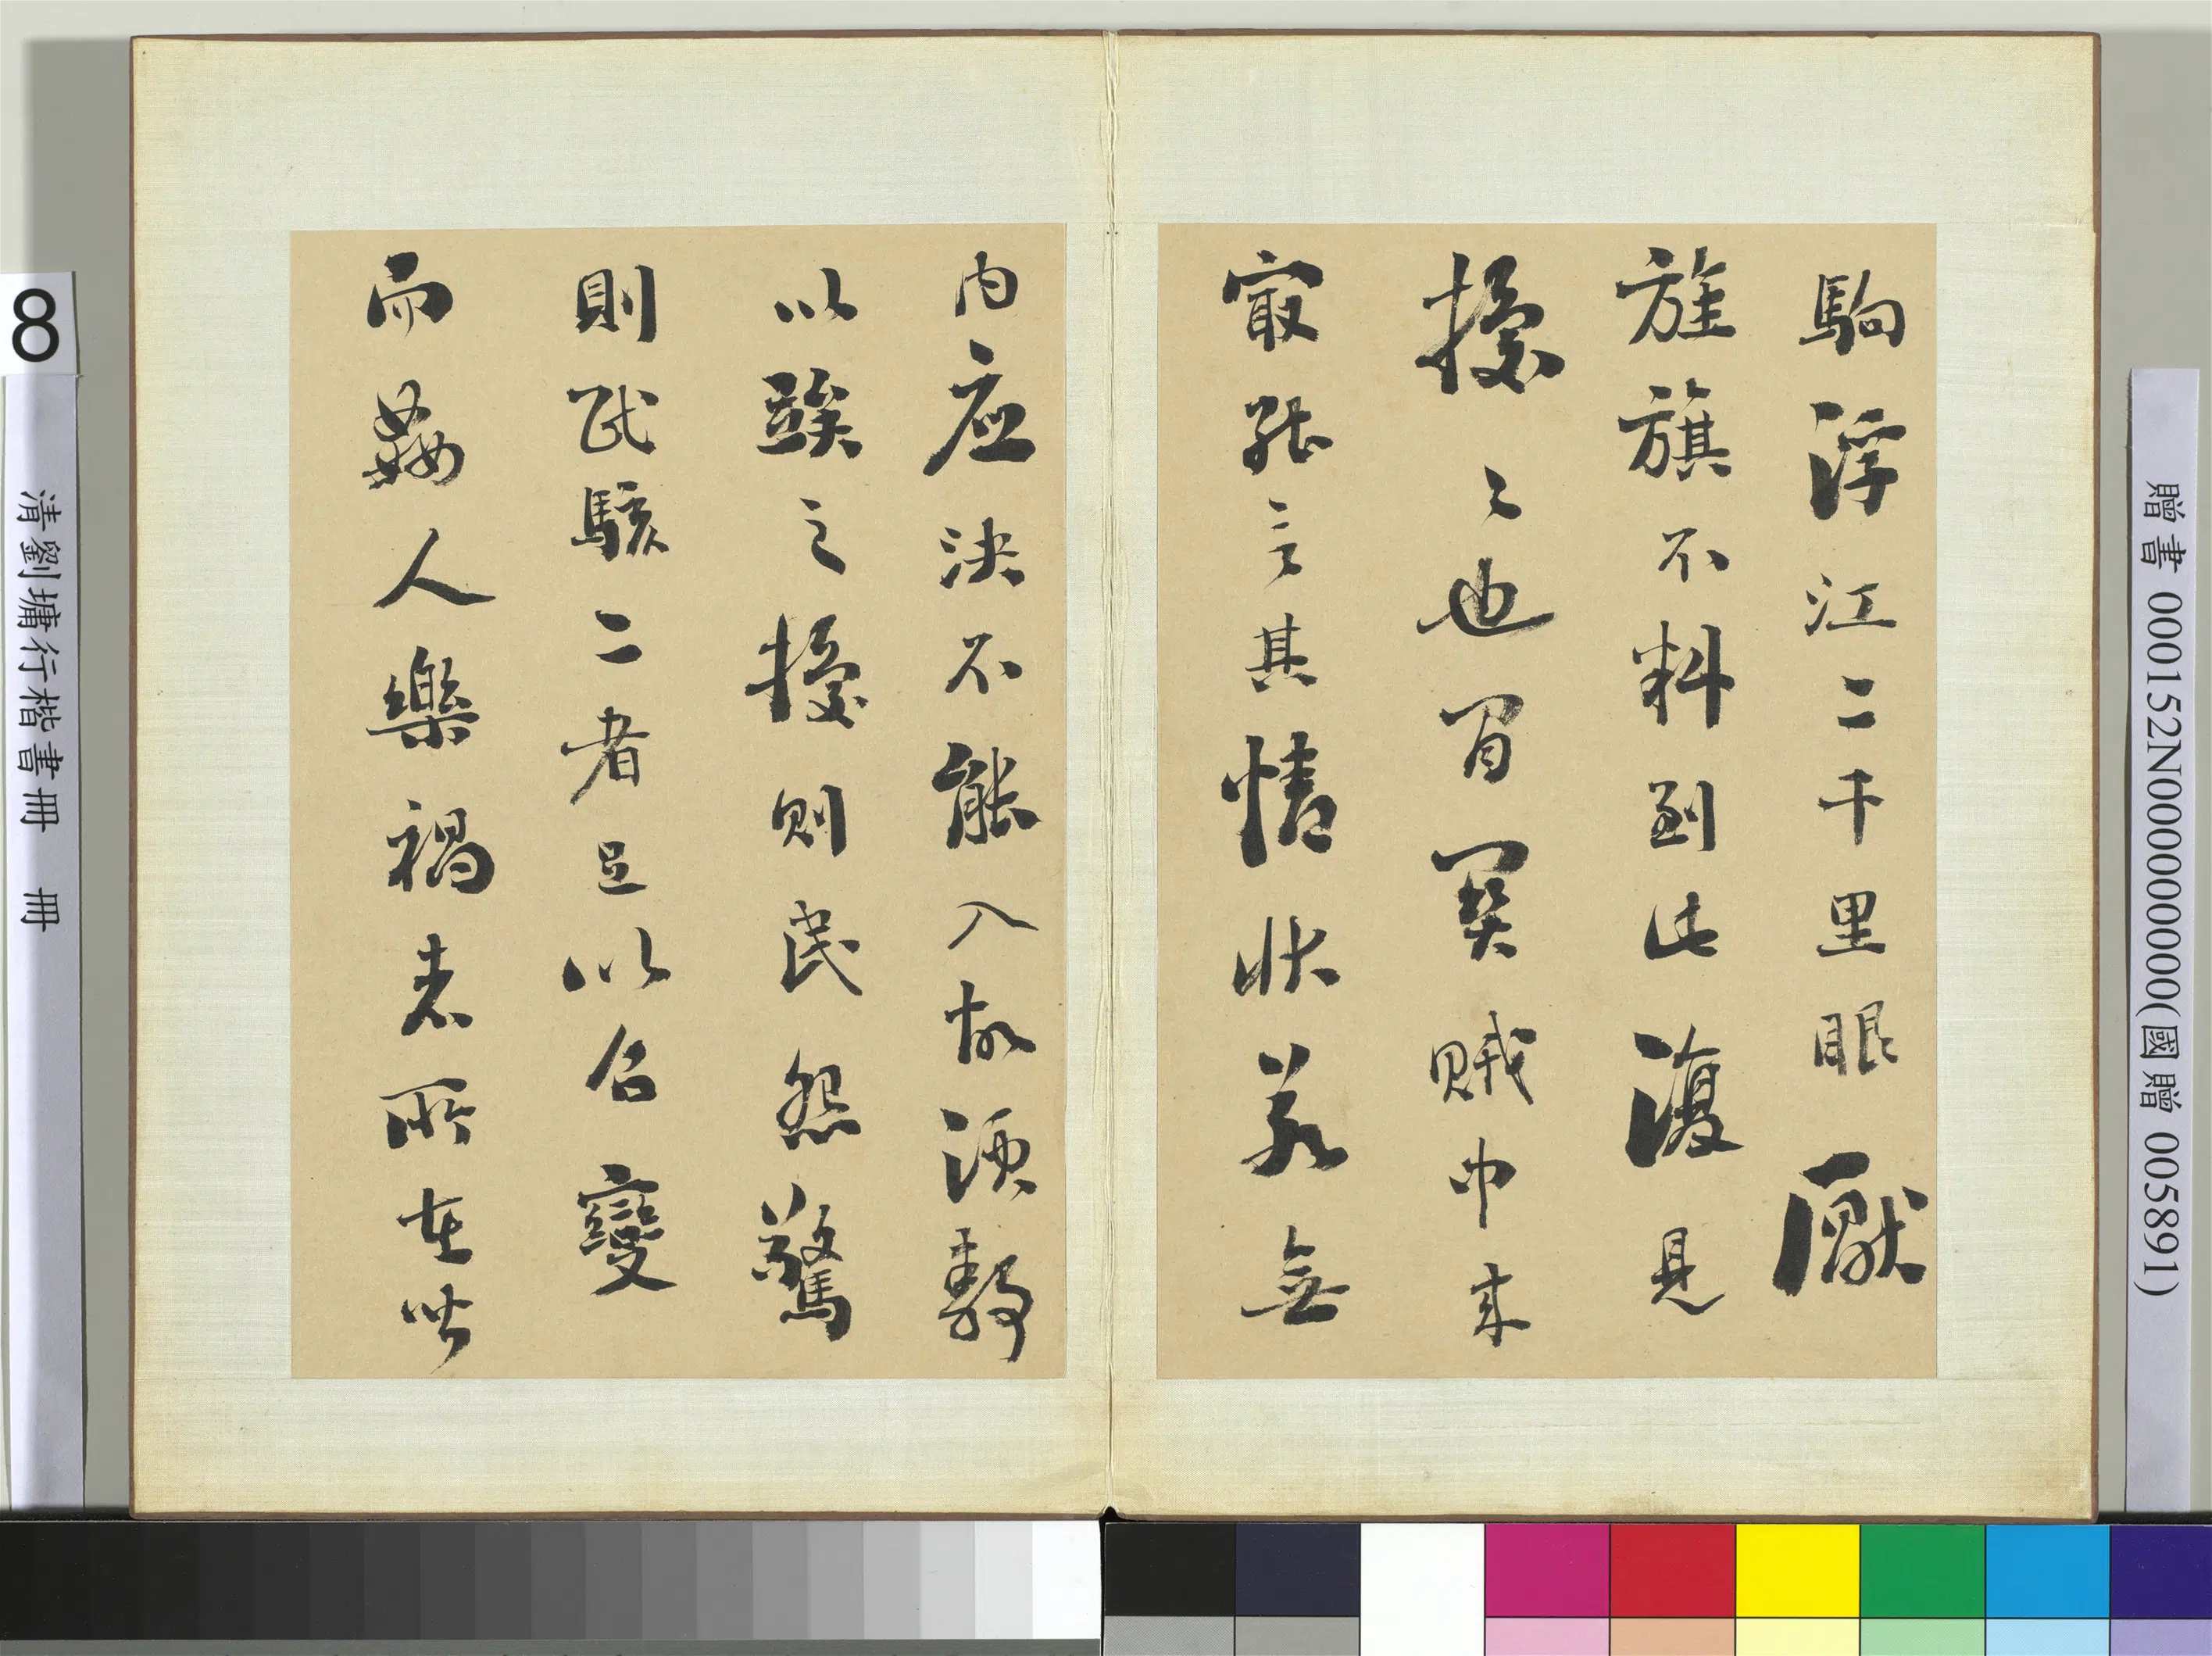 駒浮江二千里眼厭
旌旗不料到此復見
擾〻也買閑賊中來
最張言其情狀若無
內应決不能入故須數
以誒之擾則民怨驚
則民駭二者足以召變
而姦人樂禍者所在皆
8
清劉墉行楷書冊 冊
贈書 000152N000000000(國贈 005891)